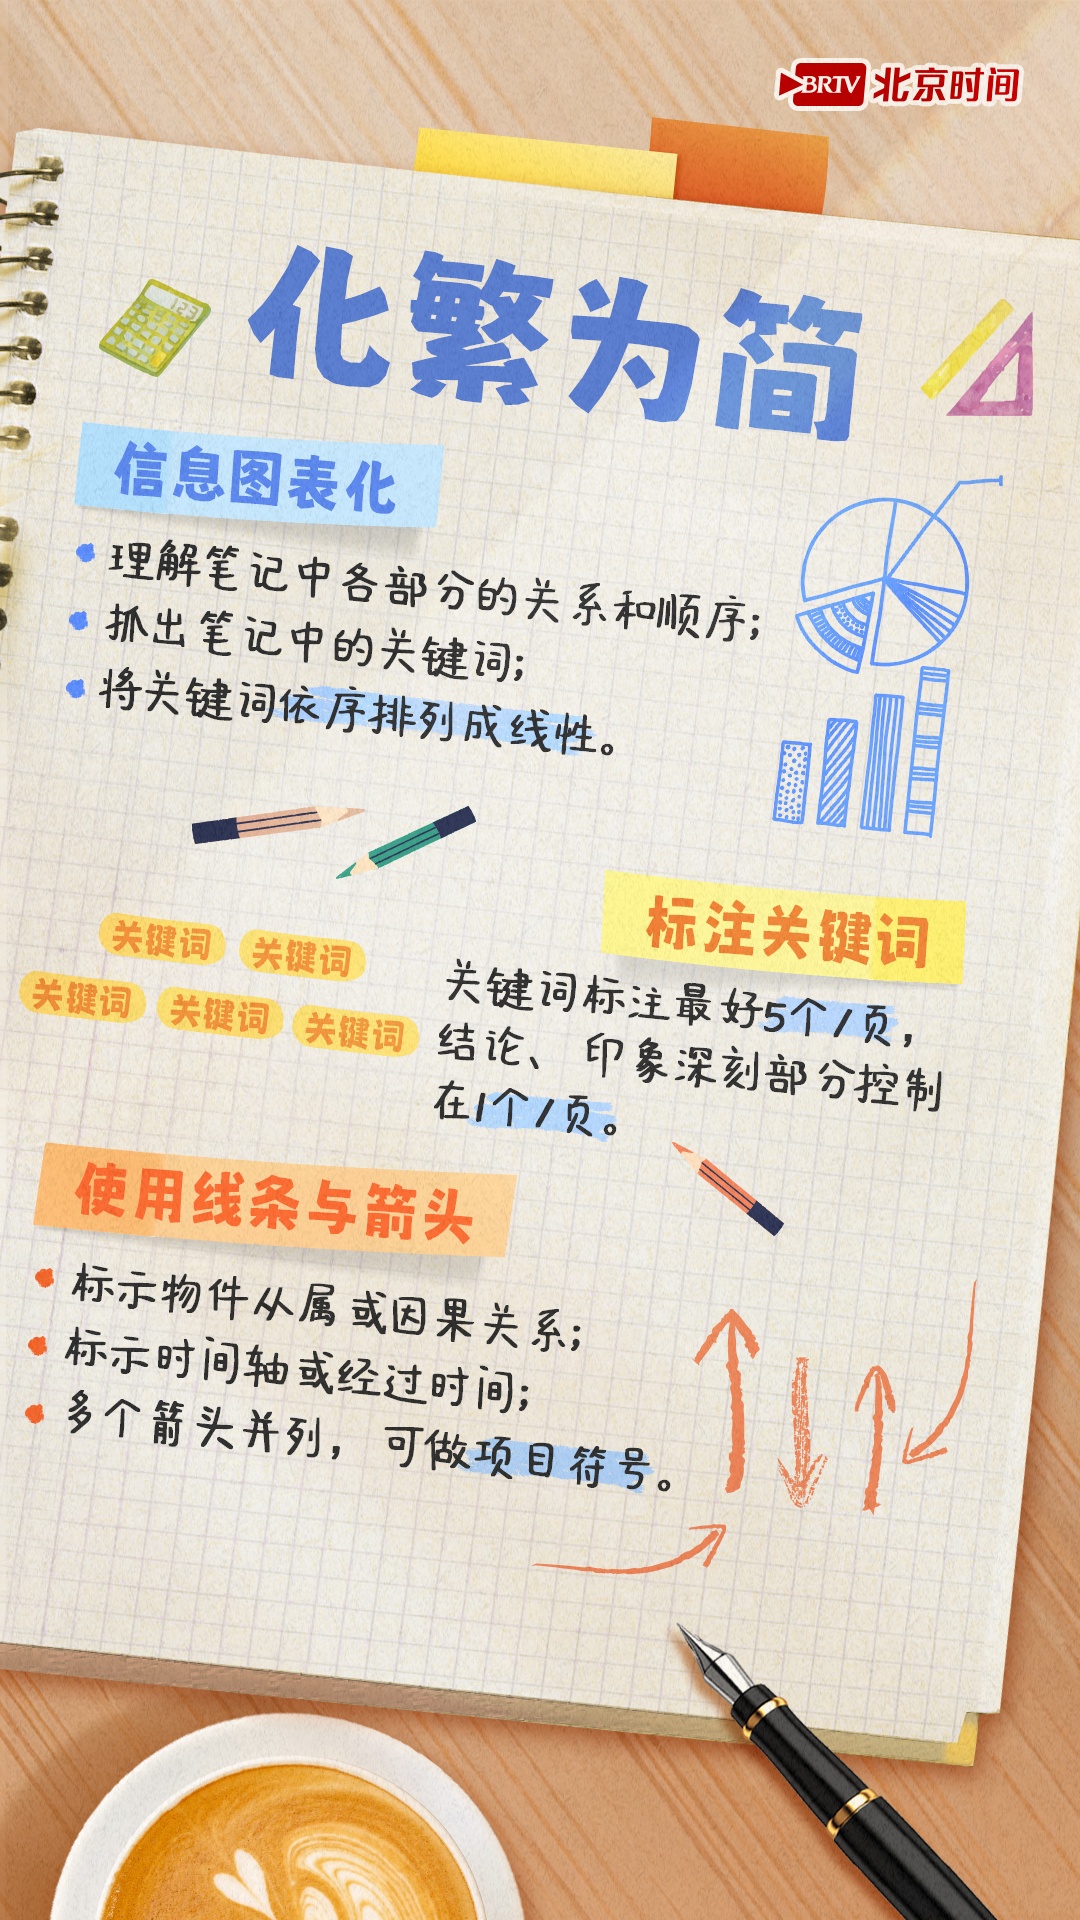 BRTV 北京时间
化繁为简
123
信息图表化
理解笔记中各部分的关系和顺序;
抓出笔记中的关键词;
将关键词依序排列成线性。
标注关键词
关键词 关键词
关键词 关键词 关键词
关键词标注最好5个/页，
结论、印象深刻部分控制
在1个/页。
使用线条与箭头
标示物件从属或因果关系;
标示时间轴或经过时间;
多个箭头并列，可做项目符号。